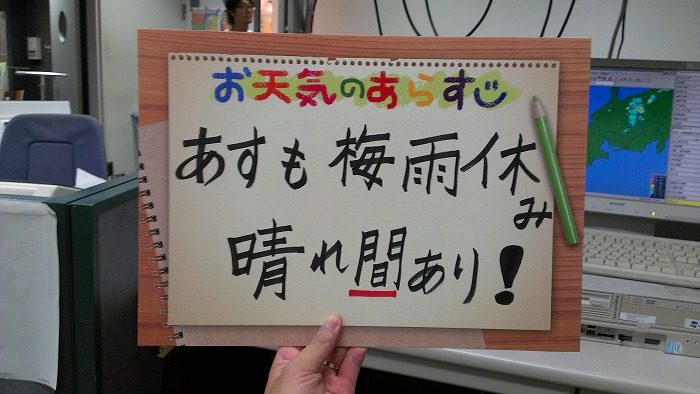 お天気のあらすじ
あすも梅雨休み
晴れ間あり！